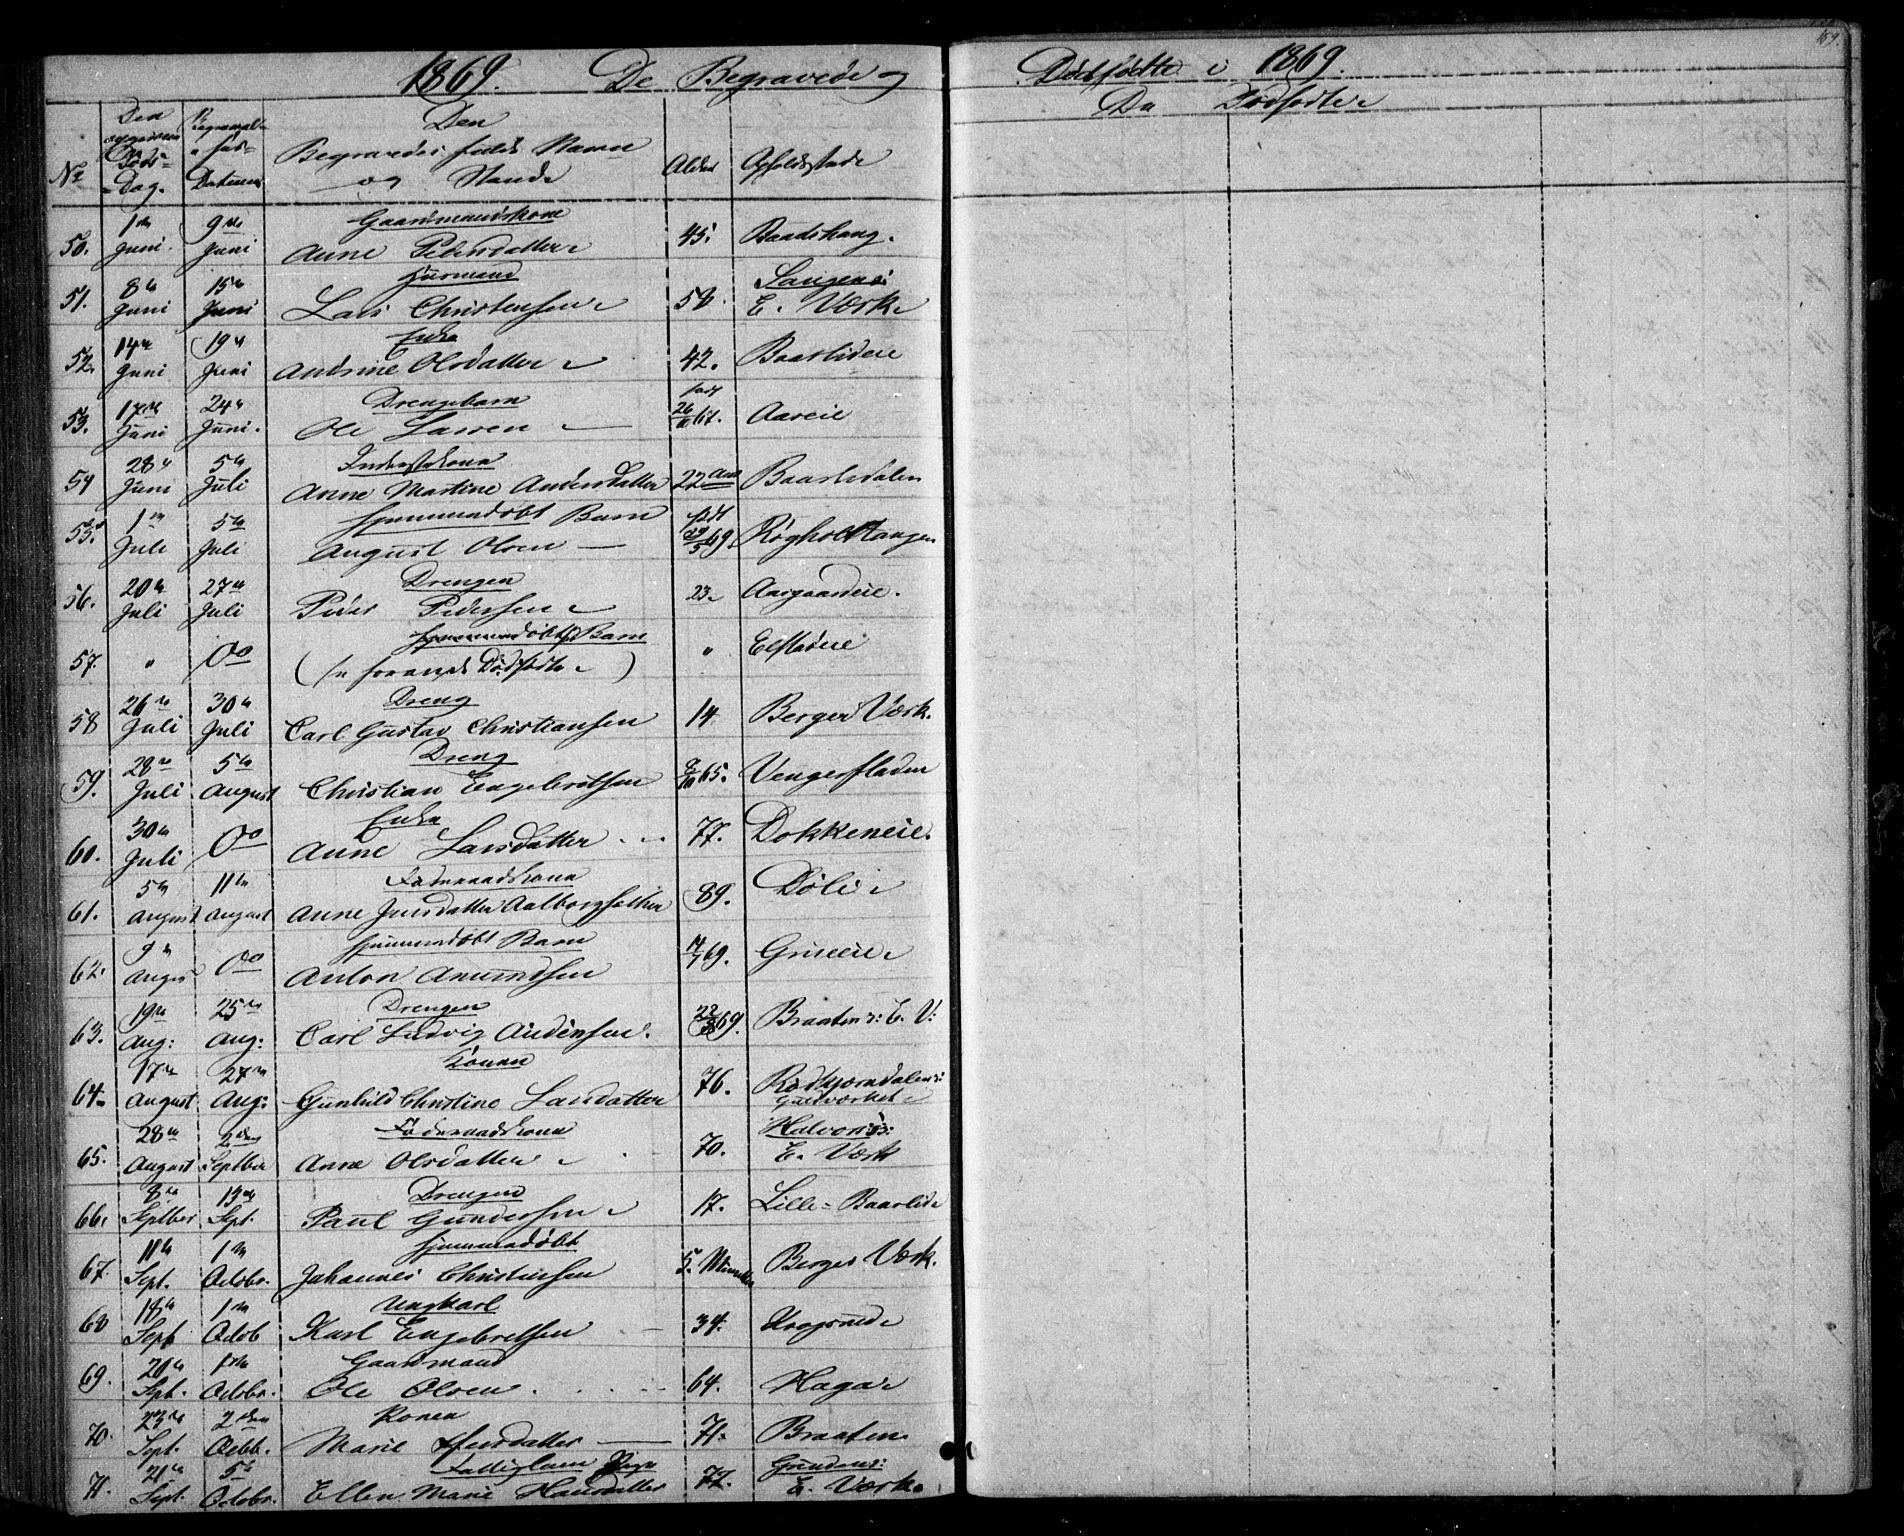 1869. De Begravede og Dødfødte i 1869.
169.
Da Dødfødte
No
Den
Døds-
Dag.
Datum
Den
Begravedes fulde Navn
og Stand
Alder
Opholdsstede
50. 1ste Juni. 9de Juni Gaardmandskone
Anne Pedersdatter 45. Baadshaug.
51. 8de Juni 15de Juni Huusmand
Lars Christensen 58. E. Værk
52. 14de Juni 19de Juni Enke
Andrine Olsdatter 42. Baarlideie
53. 17de Juni 24de Juni. Drengebarn
Ole Larsen født 26/ 67. Aareie
54 28de Juni 5te Juli
Anne Martine Andersdatter 22 Aar Baarlidalen
55. 1ste Juli 5te Juli hjemmedøbt Barn
August Olsen født 69. Røgholttangen
56. 20de Juli 27de Juli Drengen
Peder Pedersen 23. Aasgaardeie.
57. " 00 hjemmedøbt Barn
(se forande Dødfødte) " Elstadeie
58 26de Juli 30te Juli Dreng
Carl Gustav Christiansen 14 Berger Værk.
59. 28de Juli 5te August Dreng
Christian Engebretsen 8/10 65. Vengerfladen
60. 30te Juli 00 Enke
Anne Larsdatter 77. Dokkeneie.
61. 5te August 11te August Føderaadskone
Anne Jensdatter 89. Døli
62. 9de Augus 00 hjemmedøbt Barn
Anton Amundsen 14/7 69. Griseie
63. 19de Aug: 25de Aug: Drengen
Carl Ludvig Andersen. 69. Braaten : E. V:
64. 17de August 27de Aug: Konen
Gunhild Christine Larsdatter 76.
Guldværket
65. 28de August 2den Septber Føderaadskone
Anne Olsdatter 70. E. Værk
66. 8de Septber 13de Sept. Drengen
Paul Gundersen 17. Lille-Baarlid
67. 11te Sept. 1ste Octobr. hjemmedøbt
Johannes Christensen 5. Berger Værk.
68 18de Sept 1ste Octob Ungkarl
Karl Engebretsen 34. Krogsrud
69. 20de Sept. 1ste Octobr. Gaardmand
Ole Olsen 64. Haga
70. 23de Sept. 2den Octb. Konen
Marie 71. Braaten
71. 21de Sept. 5te Octobr. Fattiglem
Ellen Marie Hansdatter 77. E. Værk.